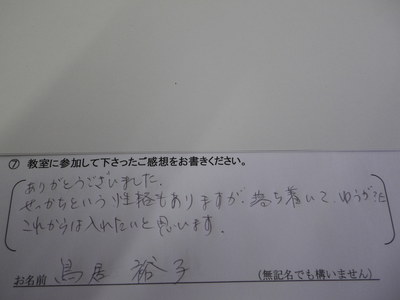 ⑦ 教室に参加して下さったご感想をお書きください。
ありがとうございました.
せっかちという性格もありますが、落ち着いて、ゆうがに
これからは入れたいと思います.
お名前 鳥居 裕子 (無記名でも構いません)